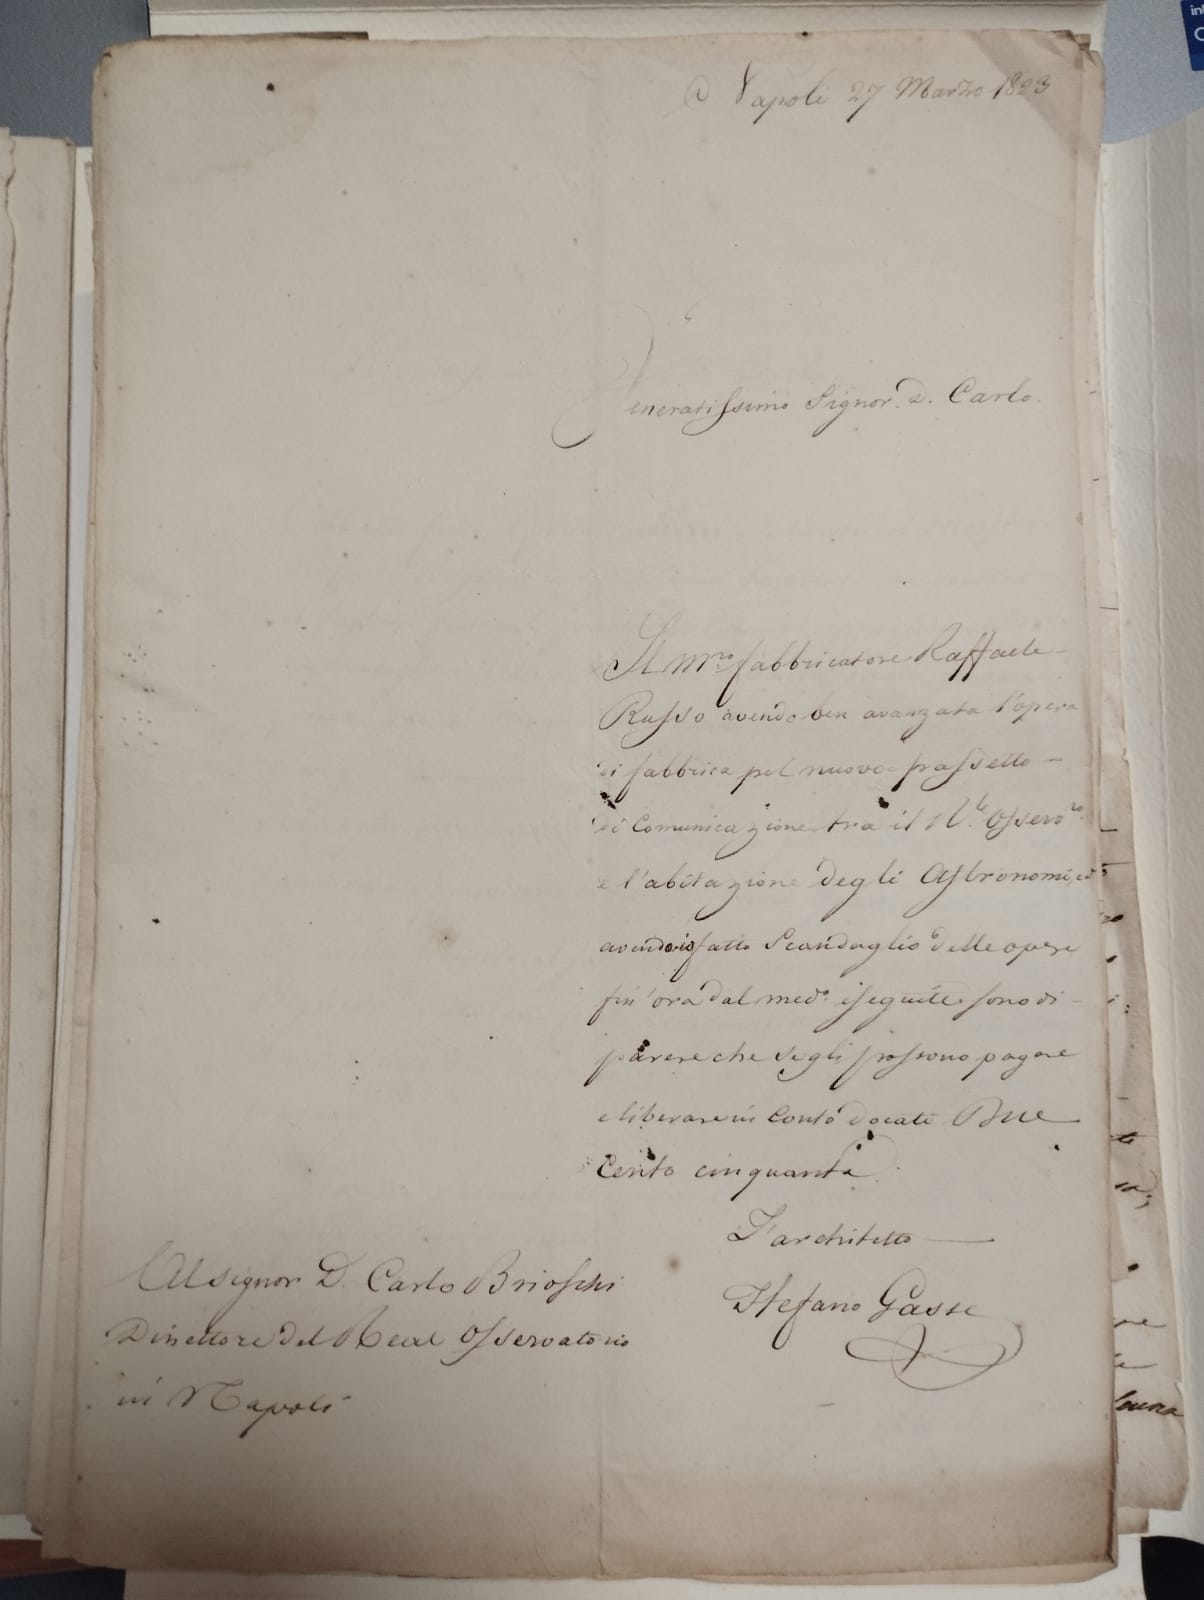 Napoli 27 Marzo 1823
Veneratissimo Signor D. Carlo.
Il Mro. fabbricatore Raffaele
Russo avendo ben avanzata l'opera
di fabbrica pel nuovo passetto
di Comunicazione tra il Rle. Osservro.
e l'abitazione degli Astronomi, ed
avendo io fatto Scandaglio delle opere
fin'ora dal medo. eseguite, sono di
parere che segli possono pagare
e liberare in conto docati Due
Cento cinquanta.
L'architetto
Stefano Gasse
Al Signor D. Carlo Brioschi
Direttore del Real Osservatorio
in Napoli